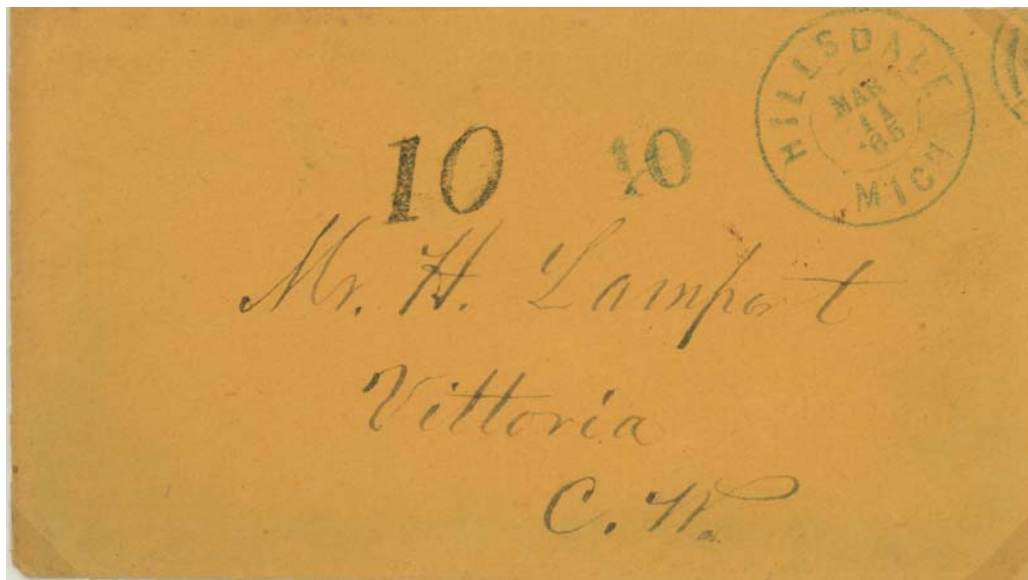 HILLSDALE
MAR
11
'65
MICH
10 10
Mr. H. Lamport
Vittoria
C. W.